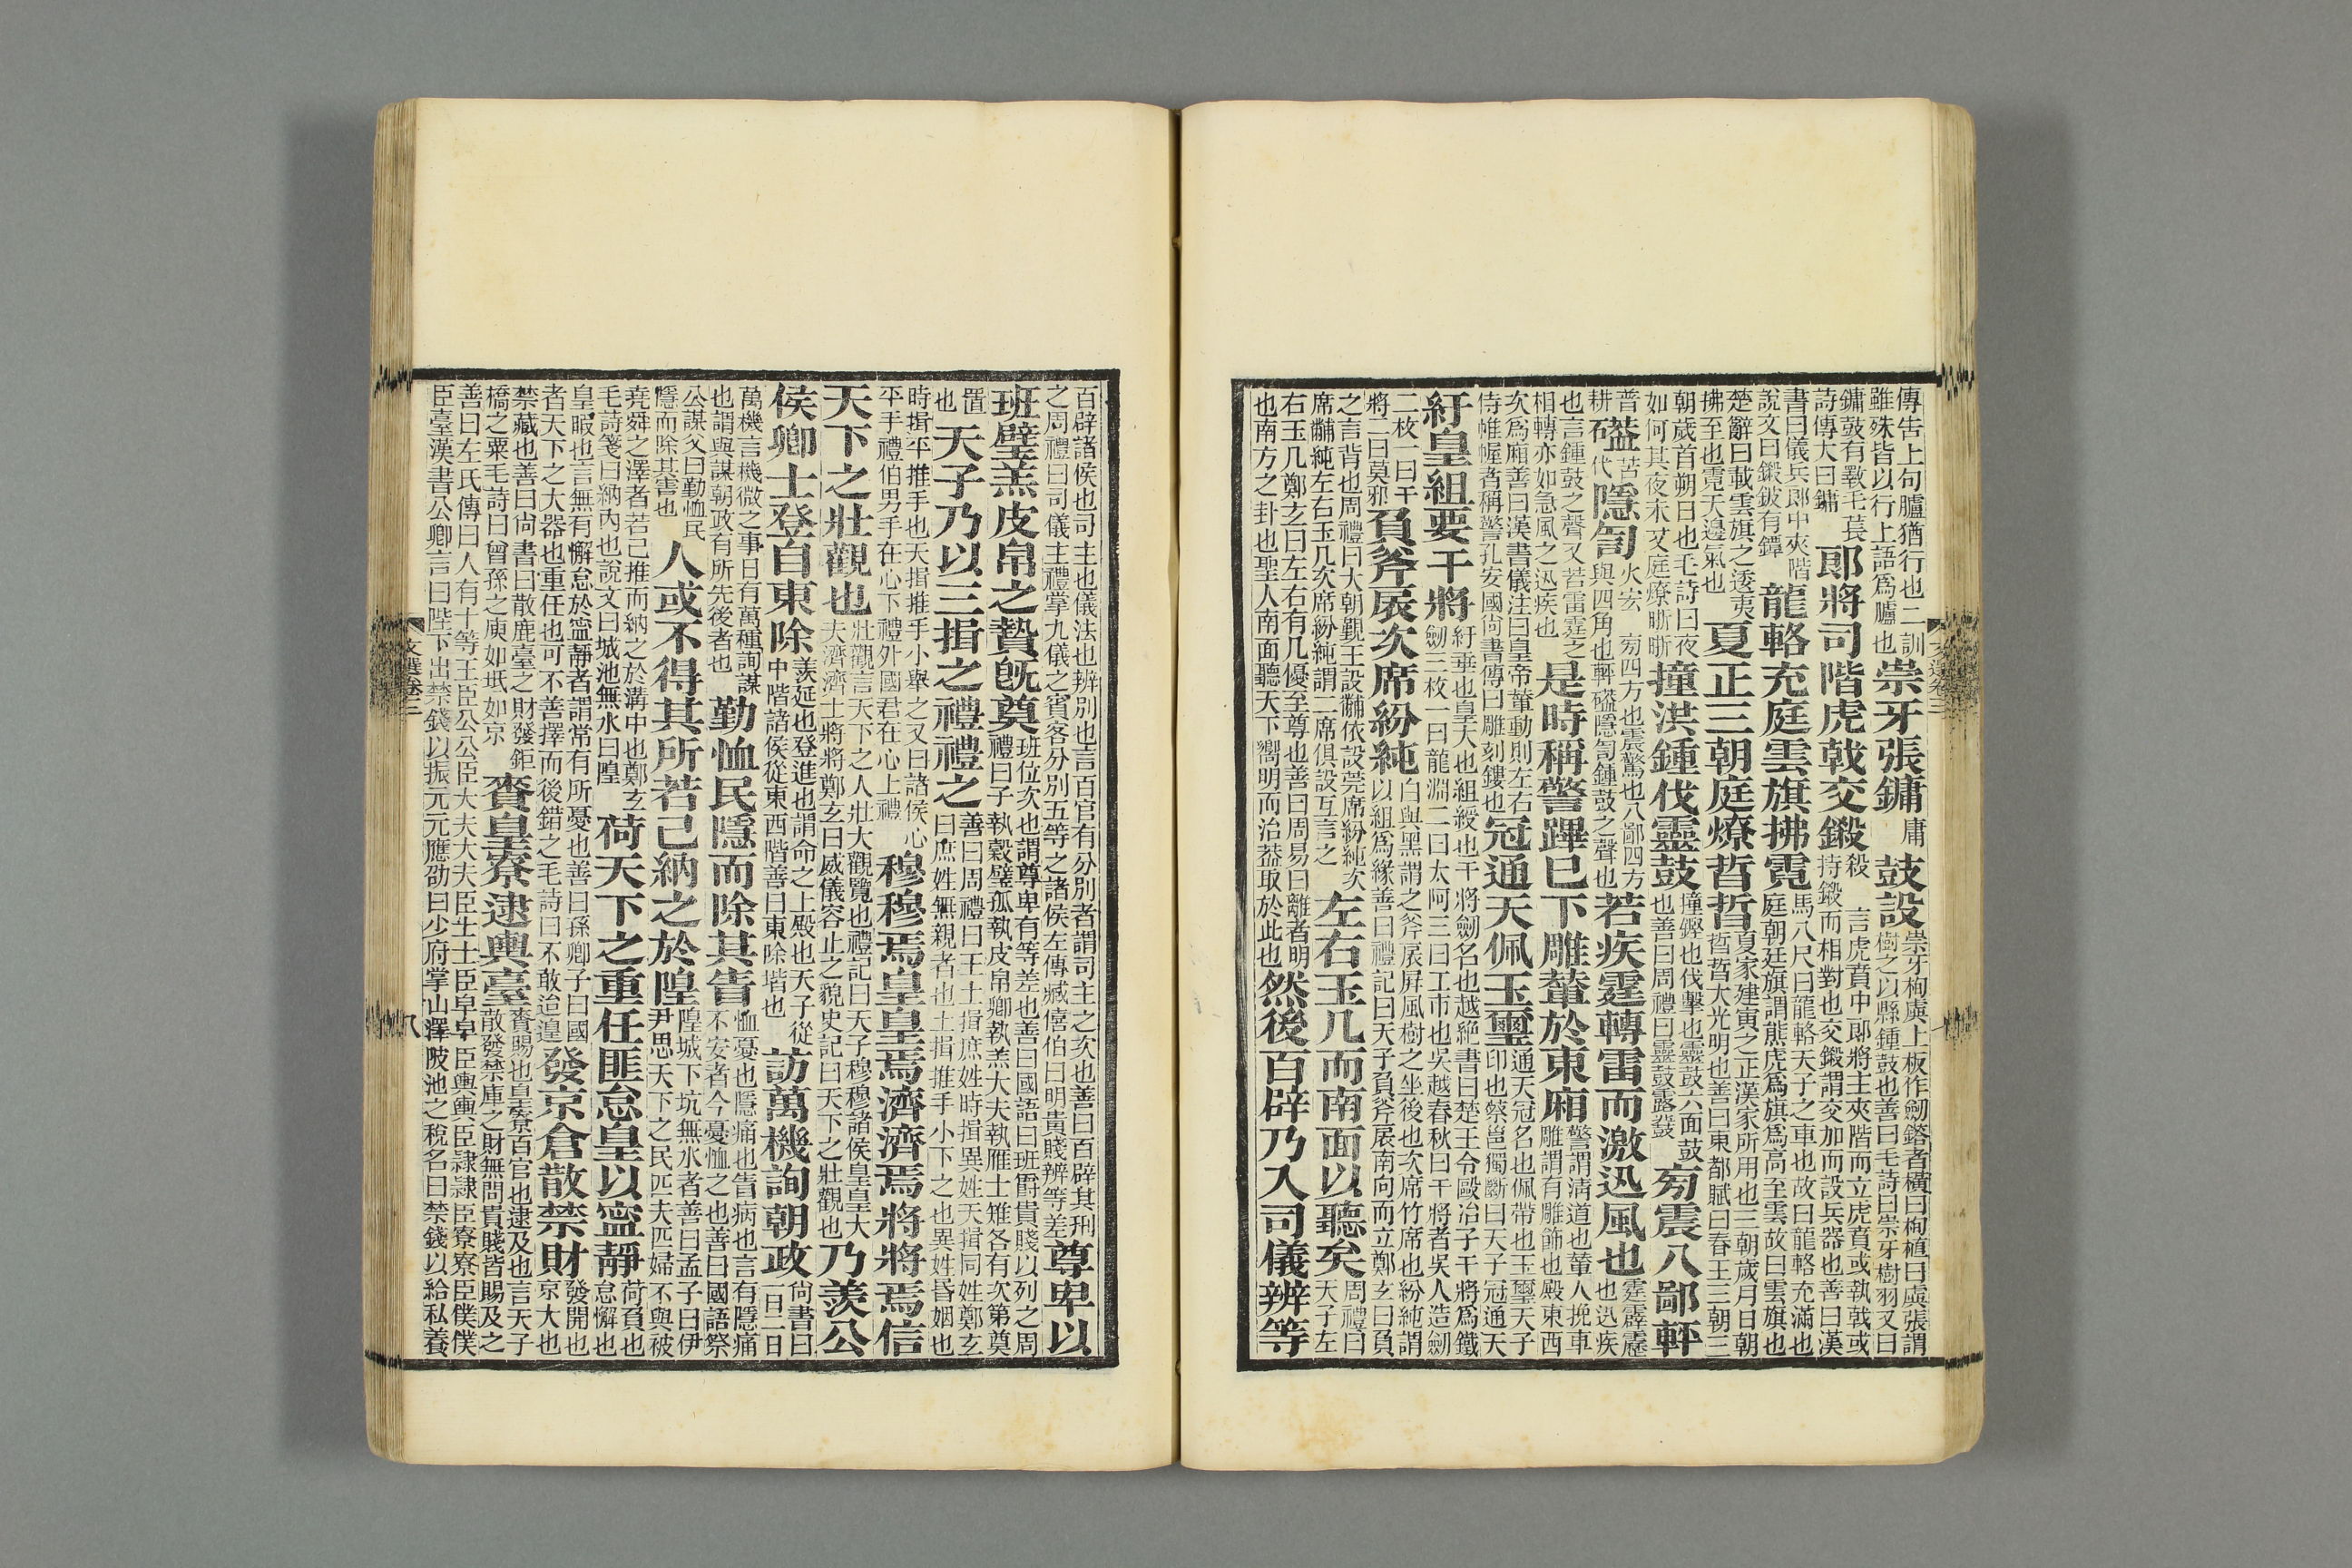 傳告上句臚猶行也二訓雖殊皆以行上語爲臚也崇牙張鏞庸鼓設崇牙栒虡上板作劒鍔者橫曰栒植曰虡張謂樹之以縣鍾鼓也善曰毛詩曰崇牙樹羽又曰
鏞鼓有斁毛萇詩傳大曰鏞郎將司階虎戟交鎩殺言虎賁中郎將主夾階而立虎賁或執戟或持鎩而相對也交鎩謂交加而設兵器也善曰漢
書曰儀兵郎中夾階說文曰鎩鈹有鐔龍輅充庭雲旗拂霓馬八尺曰龍輅天子之車也故曰龍輅充滿也庭朝廷旗謂熊虎爲旗爲高至雲故曰雲旗也
楚辭曰載雲旗之逶夷拂至也霓天邊氣也夏正三朝庭燎晢晢夏家建寅之正漢家所用也三朝歲月日朝晢晢大光明也善曰東都賦曰春王三朝三
朝歲首朔日也毛詩曰夜如何其夜未艾庭燎晣晣撞洪鍾伐靈鼓撞鏗也伐擊也靈鼓六面鼓也善曰周禮曰靈鼓露鼗旁震八鄙軯
普耕礚苦代隱訇火宏旁四方也震驚也八鄙四方與四角也軯礚隱訇鍾鼓之聲也若疾霆轉雷而激迅風也霆霹靂也迅疾
也言鍾鼓之聲又若雷霆之相轉亦如急風之迅疾也是時稱警蹕已下雕輦於東廂警謂清道也輦人挽車雕謂有雕飾也殿東西
次爲廂善曰漢書儀注曰皇帝輦動則左右侍帷幄者稱警孔安國尙書傳曰雕刻鏤也冠通天佩玉璽通天冠名也佩帶也玉璽天子印也蔡邕獨斷曰天子冠通天
紆皇組要干將紆垂也皇大也組綬也干將劒名也越絶書曰楚王令歐冶子干將爲鐵劒三枚一曰龍淵二曰太阿三曰工市也吳越春秋曰干將者吳人造劒
二枚一曰干將二曰莫邪負斧扆次席紛純白與黑謂之斧扆屏風樹之坐後也次席竹席也紛純謂以組爲緣善曰禮記曰天子負斧扆南向而立鄭玄曰負
之言背也周禮曰大朝覲王設黼依設莞席紛純次席黼純左右玉几次席紛純謂二席俱設互言之左右玉几而南面以聽矣周禮曰天子左
右玉几鄭玄曰左右有几優至尊也善曰周易曰離者明也南方之卦也聖人南面聽天下嚮明而治葢取於此也然後百辟乃入司儀辨等
百辟諸侯也司主也儀法也辨別也言百官有分別者謂司主之次也善曰百辟其刑之周禮曰司儀主禮掌九儀之賓客分別五等之諸侯左傳臧僖伯曰明貴賤辨等差尊卑以
班璧羔皮帛之贄旣奠班位次也謂尊卑有等差也善曰國語曰班爵貴賤以列之周禮曰子執穀璧孤執皮帛卿執羔大夫執雁士雉各有次第奠
置也天子乃以三揖之禮禮之善曰周禮曰王土揖庶姓時揖異姓天揖同姓鄭玄曰庶姓無親者也土揖推手小下之也異姓昏姻也
時揖平推手也天揖推手小舉之又曰諸侯心平手禮伯男手在心下禮外國君在心上禮穆穆焉皇皇焉濟濟焉將將焉信
天下之壯觀也壯觀言天下之人壯大觀覽也禮記曰天子穆穆諸侯皇皇大夫濟濟士將將鄭玄曰威儀容止之貌史記曰天下之壯觀也乃羨公
侯卿士登自東除羨延也登進也謂命之上殿也天子從中階諸侯從東西階善曰東除堦也訪萬機詢朝政尙書曰一日二日
萬機言機微之事日有萬種詢謀也謂與謀朝政有所先後者也勤恤民隱而除其眚恤憂也隱痛也眚病也言有隱痛不安者今憂恤之也善曰國語祭
公謀父曰勤恤民隱而除其害也人或不得其所若己納之於隍隍城下坑無水者善曰孟子曰伊尹思天下之民匹夫匹婦不與被
堯舜之澤者若己推而納之於溝中也鄭玄毛詩箋曰納內也說文曰城池無水曰隍荷天下之重任匪怠皇以寧靜荷負也怠懈也
皇暇也言無有懈怠於寧靜者謂常有所憂也善曰孫卿子曰國者天下之大器也重任也可不善擇而後錯之毛詩曰不敢迨遑發京倉散禁財發開也京大也
禁藏也善曰尙書曰散鹿臺之財發鉅橋之粟毛詩曰曾孫之庾如坻如京賚皇寮逮輿臺賚賜也皇寮百官也逮及也言天子散發禁庫之財無問貴賤皆賜及之
善曰左氏傳曰人有十等王臣公公臣大夫大夫臣士士臣皁皁臣輿輿臣隷隷臣寮寮臣僕僕臣臺漢書公卿言曰陛下出禁錢以振元元應劭曰少府掌山澤陂池之稅名曰禁錢以給私養
文選卷三
八